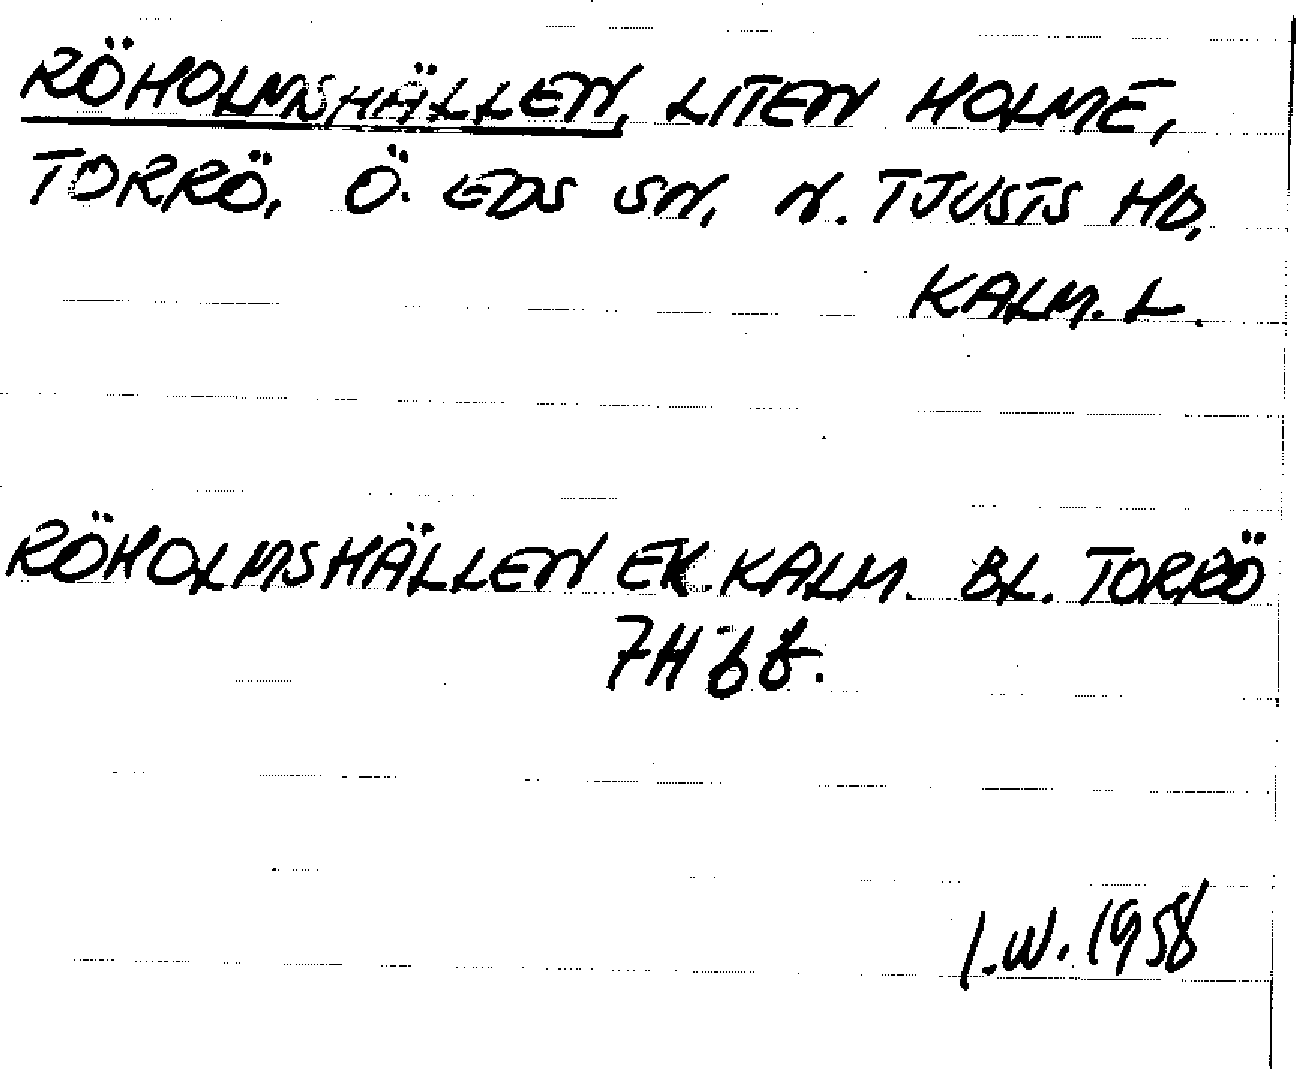 RÖHOLMSHÄLLEN, LITEN HOLME,
TORRÖ, Ö. EDS SN, N. TJUSTS HD,
KALM. L.
RÖHOLMSHÄLLEN EK. KALM. BL. TORRÖ
7H 6 f.
I.W. 1958